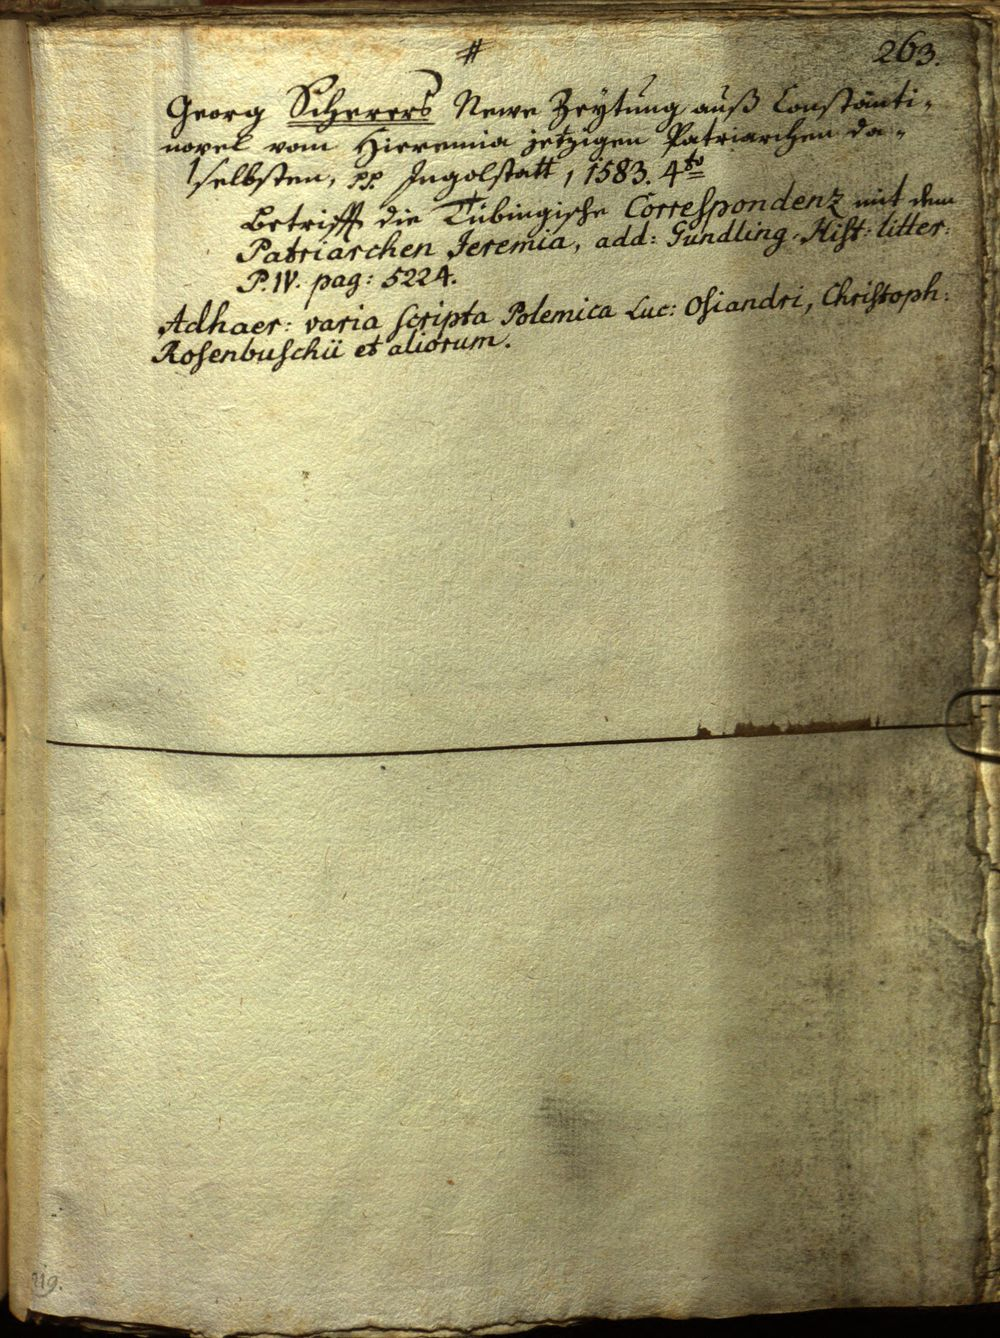 #
263.
Georg Scherers Newe Zeytung auß Constanti-
nopel vom Hieremia jetzigen Patriarchen da-
selbsten, pp. Ingolstatt, 1583. 4to
Betrifft die Tübingische Correspondenz mit dem
Patriarchen Jeremia, add: Gundling. Hist: litter:
P. IV. pag: 5224.
Adhaer: varia scripta Polemica Luc: Osiandri, Christoph:
Rosenbuschii et aliorum.
219.